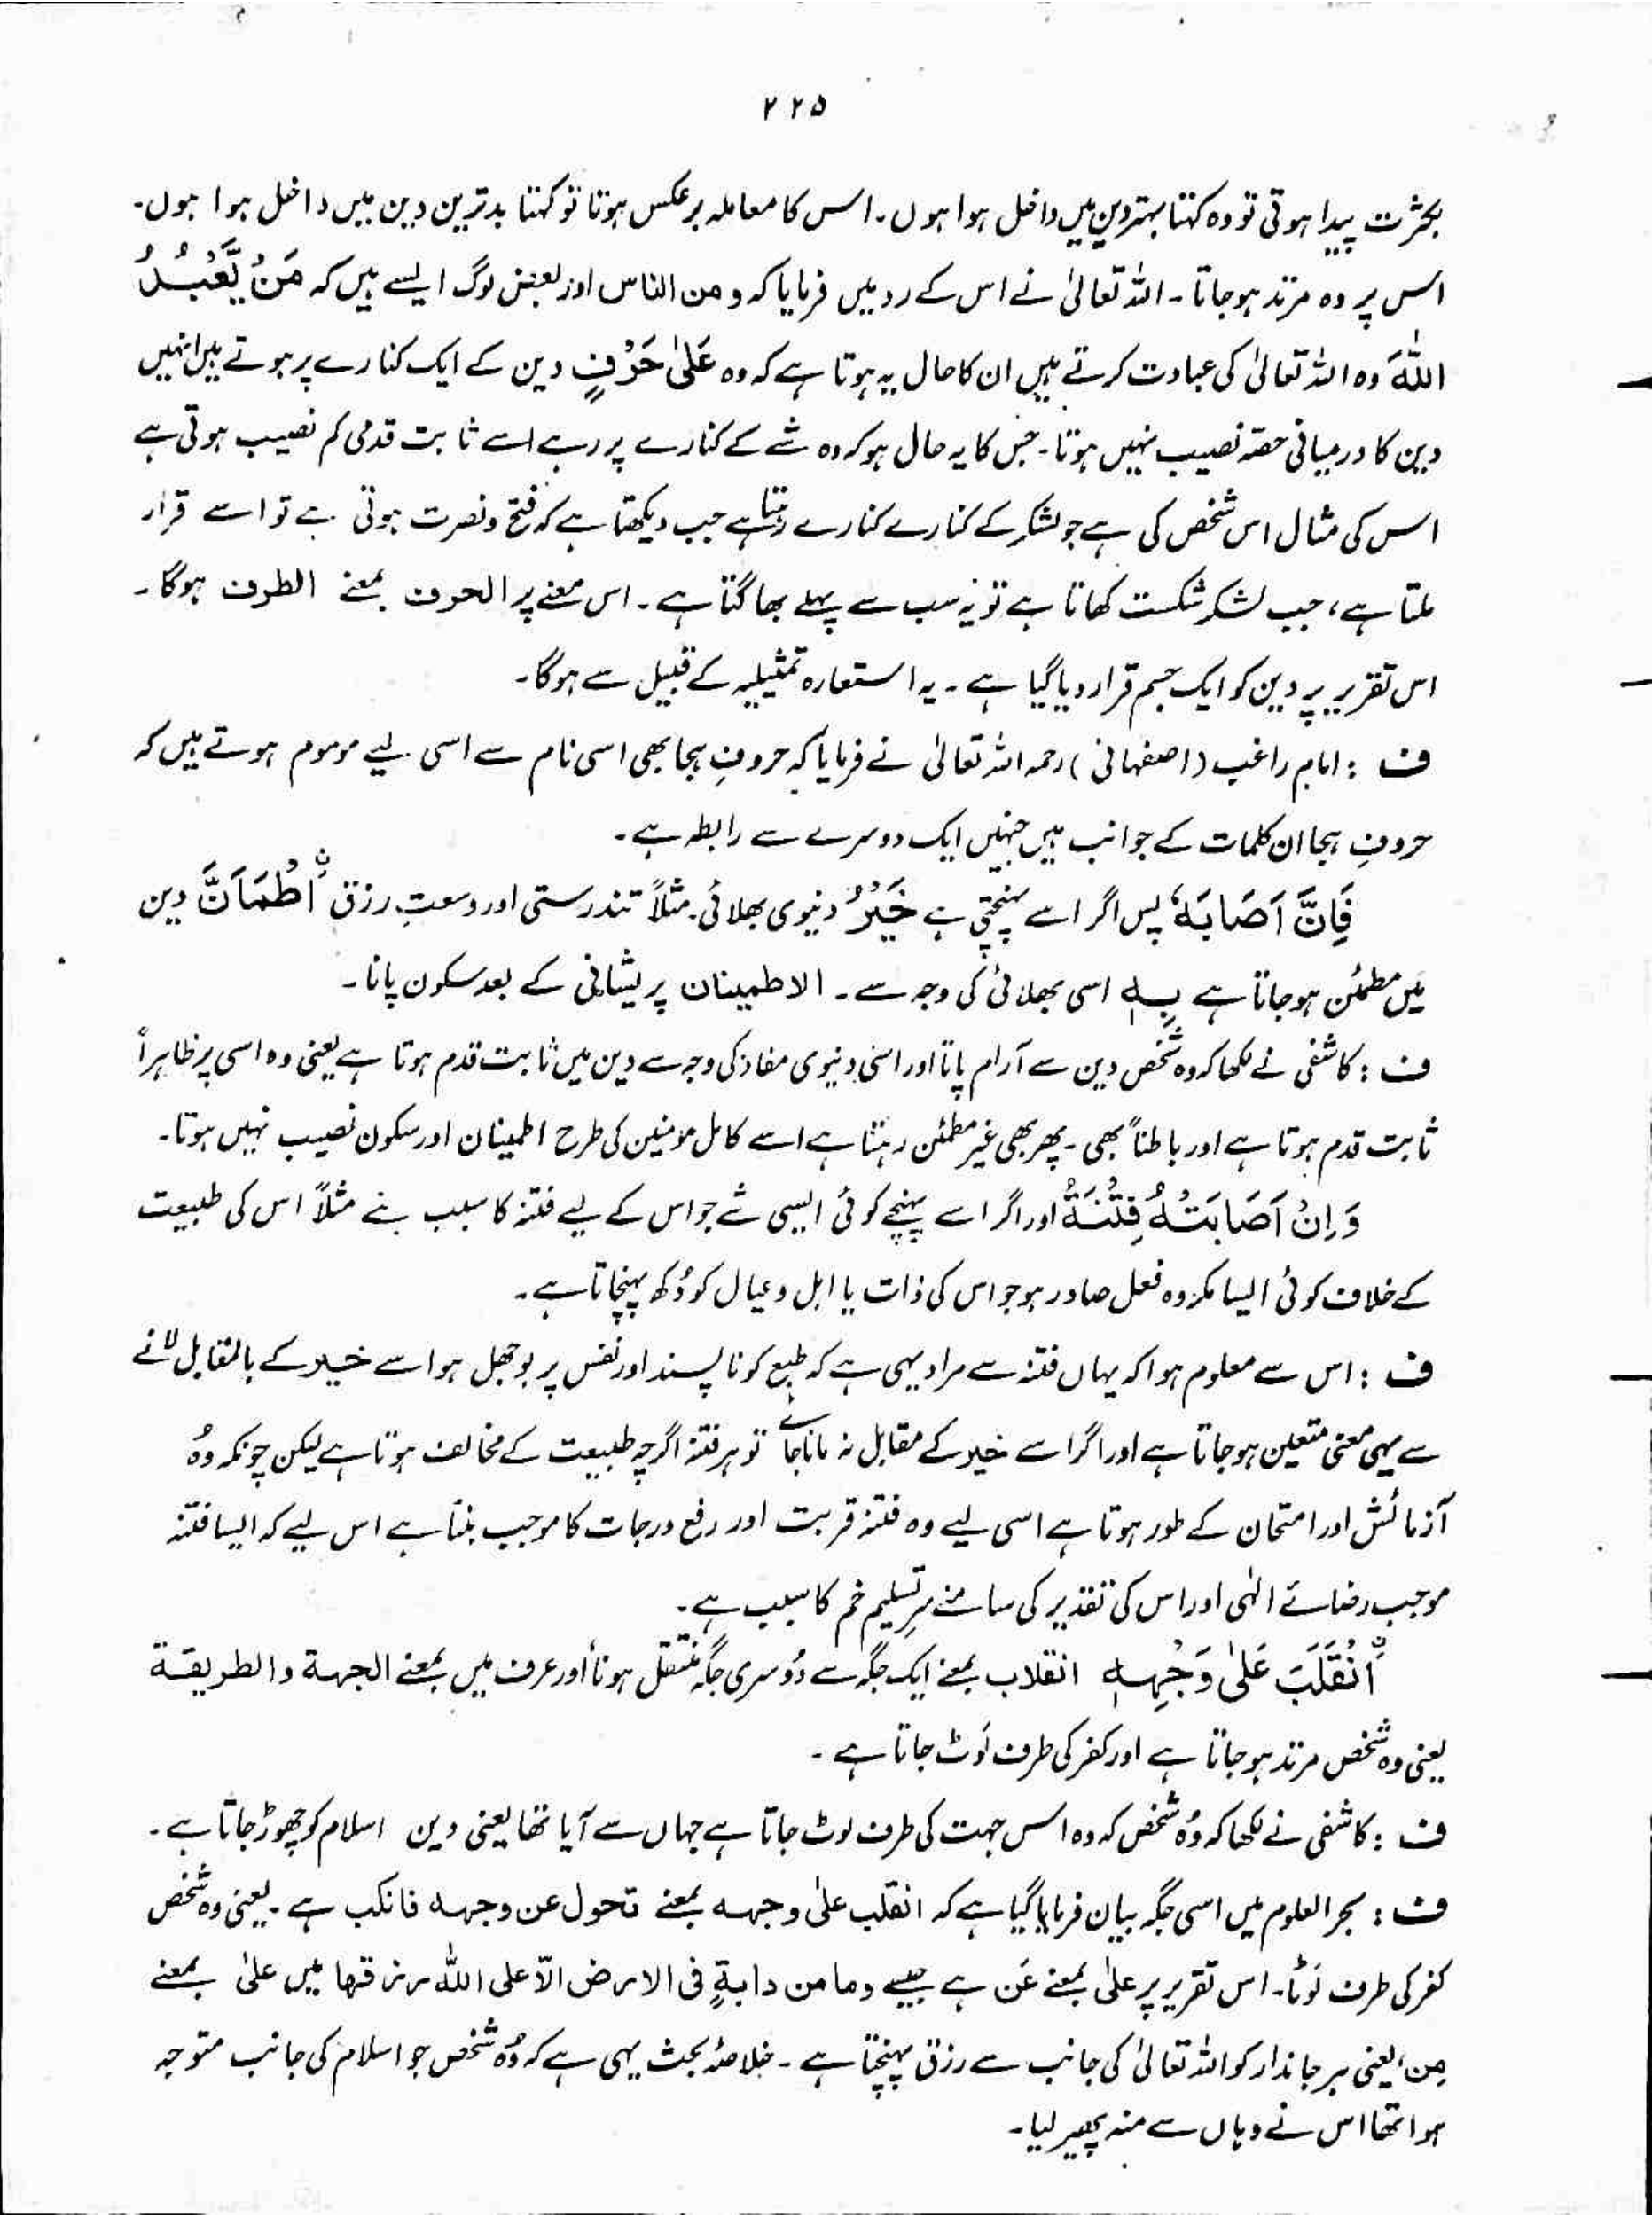 ۲۲۵
بکثرت پیدا ہوتی تو وہ کہتا بہتر دین میں داخل ہوا ہوں۔ اس کا معاملہ برعکس ہوتا تو کہتا بدترین دین میں داخل ہوا ہوں۔
اس پر وہ مرتد ہو جاتا۔ اللہ تعالیٰ نے اس کے رد میں فرمایا کہ ومن الناس اور بعض لوگ ایسے ہیں کہ مَنْ یَّعْبُدُ
اللّٰہَ وہ اللہ تعالیٰ کی عبادت کرتے ہیں ان کا حال یہ ہوتا ہے کہ وہ عَلیٰ حَرْفٍ دین کے ایک کنارے پر ہوتے ہیں انہیں
دین کا درمیانی حصہ نصیب نہیں ہوتا۔ جس کا یہ حال ہو کہ وہ شے کے کنارے پر رہے اسے ثابت قدمی کم نصیب ہوتی ہے
اس کی مثال اس شخص کی ہے جو لشکر کے کنارے کنارے رہتا ہے جب دیکھتا ہے کہ فتح و نصرت ہوتی ہے تو اسے قرار
ملتا ہے، جب لشکر شکست کھاتا ہے تو یہ سب سے پہلے بھاگتا ہے۔ اس معنے پر الحرف بمعنے الطرف ہوگا۔
اس تقریر پر دین کو ایک جسم قرار دیا گیا ہے۔ یہ استعارہ تمثیلیہ کے قبیل سے ہوگا۔
ف : امام راغب (اصفہانی) رحمہ اللہ تعالیٰ نے فرمایا کہ حروفِ ہجا بھی اسی نام سے اسی لیے موسوم ہوتے ہیں کہ
حروفِ ہجا ان کلمات کے جوانب ہیں جنہیں ایک دوسرے سے رابطہ ہے۔
فَاِنَّ اَصَابَہٗ پس اگر اسے پہنچتی ہے خَیْرُ دنیوی بھلائی۔ مثلاً تندرستی اور وسعتِ رزق اُطْمَاَنَّ دین
میں مطمئن ہو جاتا ہے بِہٖ اسی بھلائی کی وجہ سے۔ الاطمینان پریشانی کے بعد سکون پانا۔
ف : کاشفی نے لکھا کہ وہ شخص دین سے آرام پاتا اور اسی دنیوی مفاد کی وجہ سے دین میں ثابت قدم ہوتا ہے یعنی وہ اسی پر ظاہراً
ثابت قدم ہوتا ہے اور باطناً بھی۔ پھر بھی غیر مطمئن رہتا ہے اسے کامل مومنین کی طرح اطمینان اور سکون نصیب نہیں ہوتا۔
وَ اِنْ اَصَابَتْہُ فِتْنَۃُ اور اگر اسے پہنچے کوئی ایسی شے جو اس کے لیے فتنہ کا سبب بنے مثلاً اس کی طبیعت
کے خلاف کوئی ایسا مکروہ فعل صادر ہو جو اس کی ذات یا اہل و عیال کو دُکھ پہنچاتا ہے۔
ف : اس سے معلوم ہوا کہ یہاں فتنہ سے مراد یہی ہے کہ طبع کو ناپسند اور نفس پر بوجھل ہو اسے خیر کے بالمقابل لانے
سے یہی معنی متعین ہو جاتا ہے اور اگر اسے خیر کے مقابل نہ مانا جائے تو ہر فتنہ اگرچہ طبیعت کے مخالف ہوتا ہے لیکن چونکہ وہُ
آزمائش اور امتحان کے طور ہوتا ہے اسی لیے وہ فتنہ قربت اور رفع درجات کا موجب بنتا ہے اس لیے کہ ایسا فتنہ
موجب رضائے الٰہی اور اس کی تقدیر کی سامنے سرِ تسلیم خم کا سبب ہے۔
اُنْقَلَبَ عَلیٰ وَجْہِہٖ انقلاب بمعنے ایک جگہ سے دُوسری جگہ منتقل ہونا اور عرف میں بمعنے الجہۃ والطریقۃ
یعنی وہ شخص مرتد ہو جاتا ہے اور کفر کی طرف لَوٹ جاتا ہے۔
ف : کاشفی نے لکھا کہ وُہ شخص کہ وہ اس جہت کی طرف لوٹ جاتا ہے جہاں سے آیا تھا یعنی دین اسلام کو چھوڑ جاتا ہے۔
ف : بحر العلوم میں اسی جگہ بیان فرمایا گیا ہے کہ انقلب علیٰ وجہہ بمعنے تحول عن وجہہ فانکب ہے۔ یعنی وہ شخص
کفر کی طرف لَوٹا۔ اس تقریر پر علیٰ بمعنے عَن ہے جیسے وما من دابۃٍ فی الارض الّا علی اللّٰہ رزقہا میں علیٰ بمعنے
مِن، یعنی ہر جاندار کو اللہ تعالیٰ کی جانب سے رزق پہنچتا ہے۔ خلاصۂ بحث یہی ہے کہ وُہ شخص جو اسلام کی جانب متوجہ
ہوا تھا اس نے وہاں سے منہ پھیر لیا۔